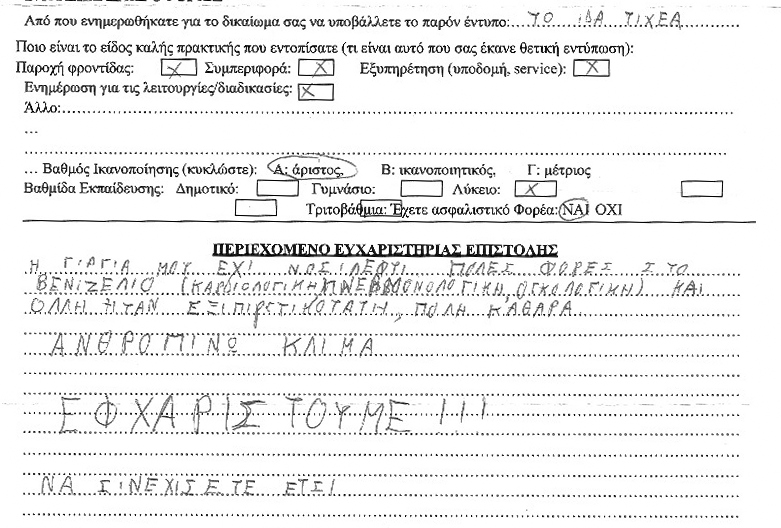 Από που ενημερωθήκατε για το δικαίωμα σας να υποβάλλετε το παρόν έντυπο: ΤΟ ΙΔΑ ΤΙΧΕΑ
Ποιο είναι το είδος καλής πρακτικής που εντοπίσατε (τι είναι αυτό που σας έκανε θετική εντύπωση):
Παροχή φροντίδας: X Συμπεριφορά: X Εξυπηρέτηση (υποδομή, service): X
Ενημέρωση για τις λειτουργίες/διαδικασίες: X
Άλλο:
...
... Βαθμός Ικανοποίησης (κυκλώστε): Α: άριστος, Β: ικανοποιητικός, Γ: μέτριος
Βαθμίδα Εκπαίδευσης: Δημοτικό: Γυμνάσιο: Λύκειο: X
Τριτοβάθμια: Έχετε ασφαλιστικό Φορέα: ΝΑΙ ΟΧΙ
ΠΕΡΙΕΧΟΜΕΝΟ ΕΥΧΑΡΙΣΤΗΡΙΑΣ ΕΠΙΣΤΟΛΗΣ
Η ΓΙΑΓΙΑ ΜΟΥ ΕΧΙ ΝΟΣΙΛΕΦΤΙ ΠΟΛΕΣ ΦΟΡΕΣ ΣΤΟ
ΒΕΝΙΖΕΛΙΟ (ΚΑΡΔΙΟΛΟΓΙΚΗ, ΠΝΕΒΜΟΝΟΛΟΓΙΚΗ, ΟΓΚΟΛΟΓΙΚΗ) ΚΑΙ
ΟΛΛΗ ΗΤΑΝ ΕΞΙΠΙΡΕΤΙΚΟΤΑΤΗ, ΠΟΛΗ ΚΑΘΑΡΑ
ΑΝΘΡΟΠΙΝΩ ΚΛΙΜΑ
ΕΦΧΑΡΙΣΤΟΥΜΕ!!!
ΝΑ ΣΙΝΕΧΙΣΕΤΕ ΕΤΣΙ